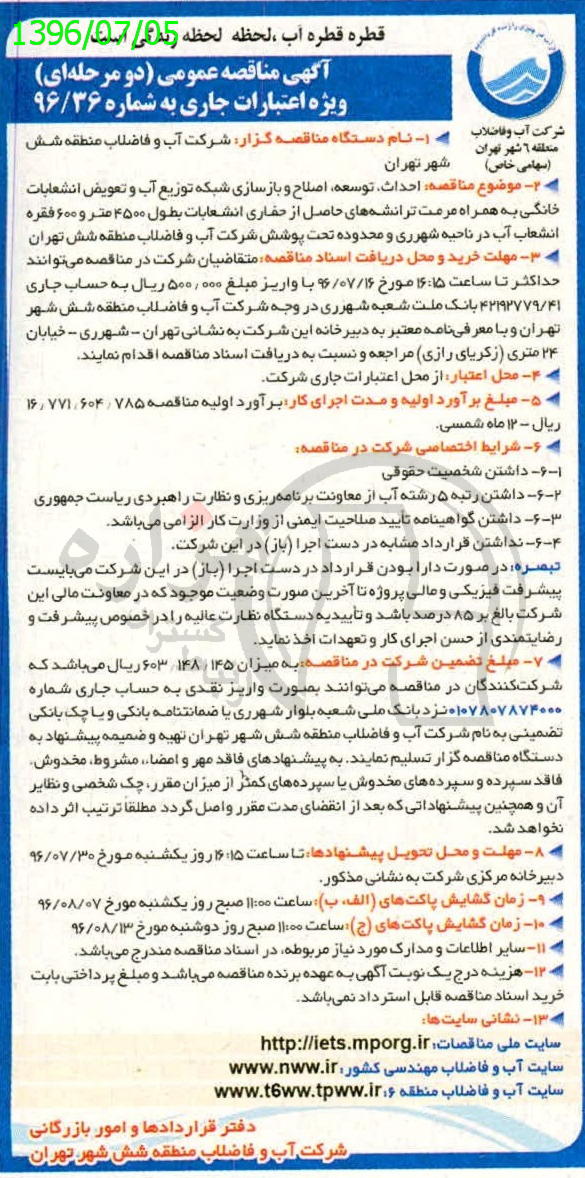 1396/07/05
قطره قطره آب ،لحظه لحظه زندگی است
آگهی مناقصه عمومی (دو مرحله‌ای)
ویژه اعتبارات جاری به شماره ۹۶/۳۶
شرکت آب وفاضلاب
منطقه ۶ شهر تهران
(سهامی خاص)
۱- نـام دستگاه مناقصـه گـزار: شرکت آب و فاضلاب منطقه شش
شهر تهران
۲- موضوع مناقصه: احداث، توسعه، اصلاح و بازسازی شبکه توزیع آب و تعویض انشعابات
خانگی به همراه مرمت ترانشه‌های حاصل از حفاری انشعابات بطول ۴۵۰۰ متر و ۶۰۰ فقره
انشعاب آب در ناحیه شهرری و محدوده تحت پوشش شرکت آب و فاضلاب منطقه شش تهران
۳- مهلت خرید و محل دریافت اسناد مناقصه: متقاضیان شرکت در مناقصه می‌توانند
حداکثر تـا ساعت ۱۶:۱۵ مورخ ۹۶/۰۷/۱۶ با واریـز مبلغ ۵۰۰,۰۰۰ ریـال به حساب جاری
۴۲۱۹۲۷۷۹/۴۱ بانک ملـت شـعبه شهرری در وجـه شرکت آب و فاضلـاب منطقه شش شهر
تهـران و بـا معرفی‌نامـه معتبر به دبیرخانه این شرکت به نشانی تهران - شهرری - خیابان
۲۴ متری (زکریای رازی) مراجعه و نسبت به دریافت اسناد مناقصه اقدام نمایند.
۴- محل اعتبار: از محل اعتبارات جاری شرکت.
۵- مبلـغ بر آورد اولیه و مـدت اجرای کار: بـر آورد اولیه مناقصـه ۱۶,۷۷۱,۶۰۴,۷۸۵
ریال - ۱۲ ماه شمسی.
۶- شرایط اختصاصی شرکت در مناقصه:
۶-۱- داشتن شخصیت حقوقی
۶-۲- داشتن رتبه ۵ رشته آب از معاونت برنامه‌ریزی و نظارت راهبردی ریاست جمهوری
۶-۳- داشتن گواهینامه تایید صلاحیت ایمنی از وزارت کار الزامی می‌باشد.
۶-۴- نداشتن قرارداد مشابه در دست اجرا (باز) در این شرکت.
تبصـره: در صـورت دارا بـودن قـرارداد در دسـت اجـرا (بـاز) در ایـن شـرکت می‌بایست
پیشـرفت فیزیکـی و مالـی پروژه تا آخرین صورت وضعیت موجود که در معاونت مالی این
شرکت بالغ بر ۸۵ درصد باشد و تأییدیه دستگاه نظارت عالیه را در خصوص پیشرفت و
رضایتمندی از حسن اجرای کار و تعهدات اخذ نماید.
۷- مبلـغ تضمین شـرکت در مناقصـه: بـه میـزان ۶۰۳,۱۴۸,۱۴۵ ریـال می‌باشد کـه
شـرکت‌کنندگان در مناقصـه می‌تواننـد بصورت واریـز نقـدی به حساب جاری شماره
۰۱۰۷۸۰۷۸۷۴۰۰۰ نـزد بانـک ملـی شـعبه بلـوار شهـرری یـا ضمانتنامه بانکی و یـا چک بانکی
تضمینی به نام شرکت آب و فاضلاب منطقه شش شهر تهران تهیه و ضمیمه پیشنهاد به
دستگاه مناقصه گزار تسلیم نمایند. به پیشنهادهای فاقد مهر و امضاء، مشروط، مخدوش،
فاقد سپرده و سپرده‌های مخدوش یا سپرده‌های کمتر از میزان مقرر، چک شخصی و نظایر
آن و همچنین پیشنهاداتی که بعد از انقضای مدت مقرر واصل گردد مطلقا ترتیب اثر داده
نخواهد شد.
۸- مهلـت و محـل تحویـل پیشـنهادها: تـا سـاعت ۱۶:۱۵ روز یکشـنبه مـورخ ۹۶/۰۷/۳۰
دبیرخانه مرکزی شرکت به نشانی مذکور.
۹- زمان گشایش پاکت‌های (الف، ب): ساعت ۱۱:۰۰ صبح روز یکشنبه مورخ ۹۶/۰۸/۰۷
۱۰- زمان گشایش پاکت‌های (ج): ساعت ۱۱:۰۰ صبح روز دوشنبه مورخ ۹۶/۰۸/۱۳
۱۱- سایر اطلاعات و مدارک مورد نیاز مربوطه، در اسناد مناقصه مندرج می‌باشد.
۱۲- هزینه درج یک نوبت آگهی به عهده برنده مناقصه می‌باشد و مبلغ پرداختی بابت
خرید اسناد مناقصه قابل استرداد نمی‌باشد.
۱۳- نشانی سایت‌ها:
سایت ملی مناقصات: http://iets.mporg.ir
سایت آب و فاضلاب مهندسی کشور: www.nww.ir
سایت آب و فاضلاب منطقه ۶: www.t6ww.tpww.ir
دفتر قراردادها و امور بازرگانی
شرکت آب و فاضلاب منطقه شش شهر تهران